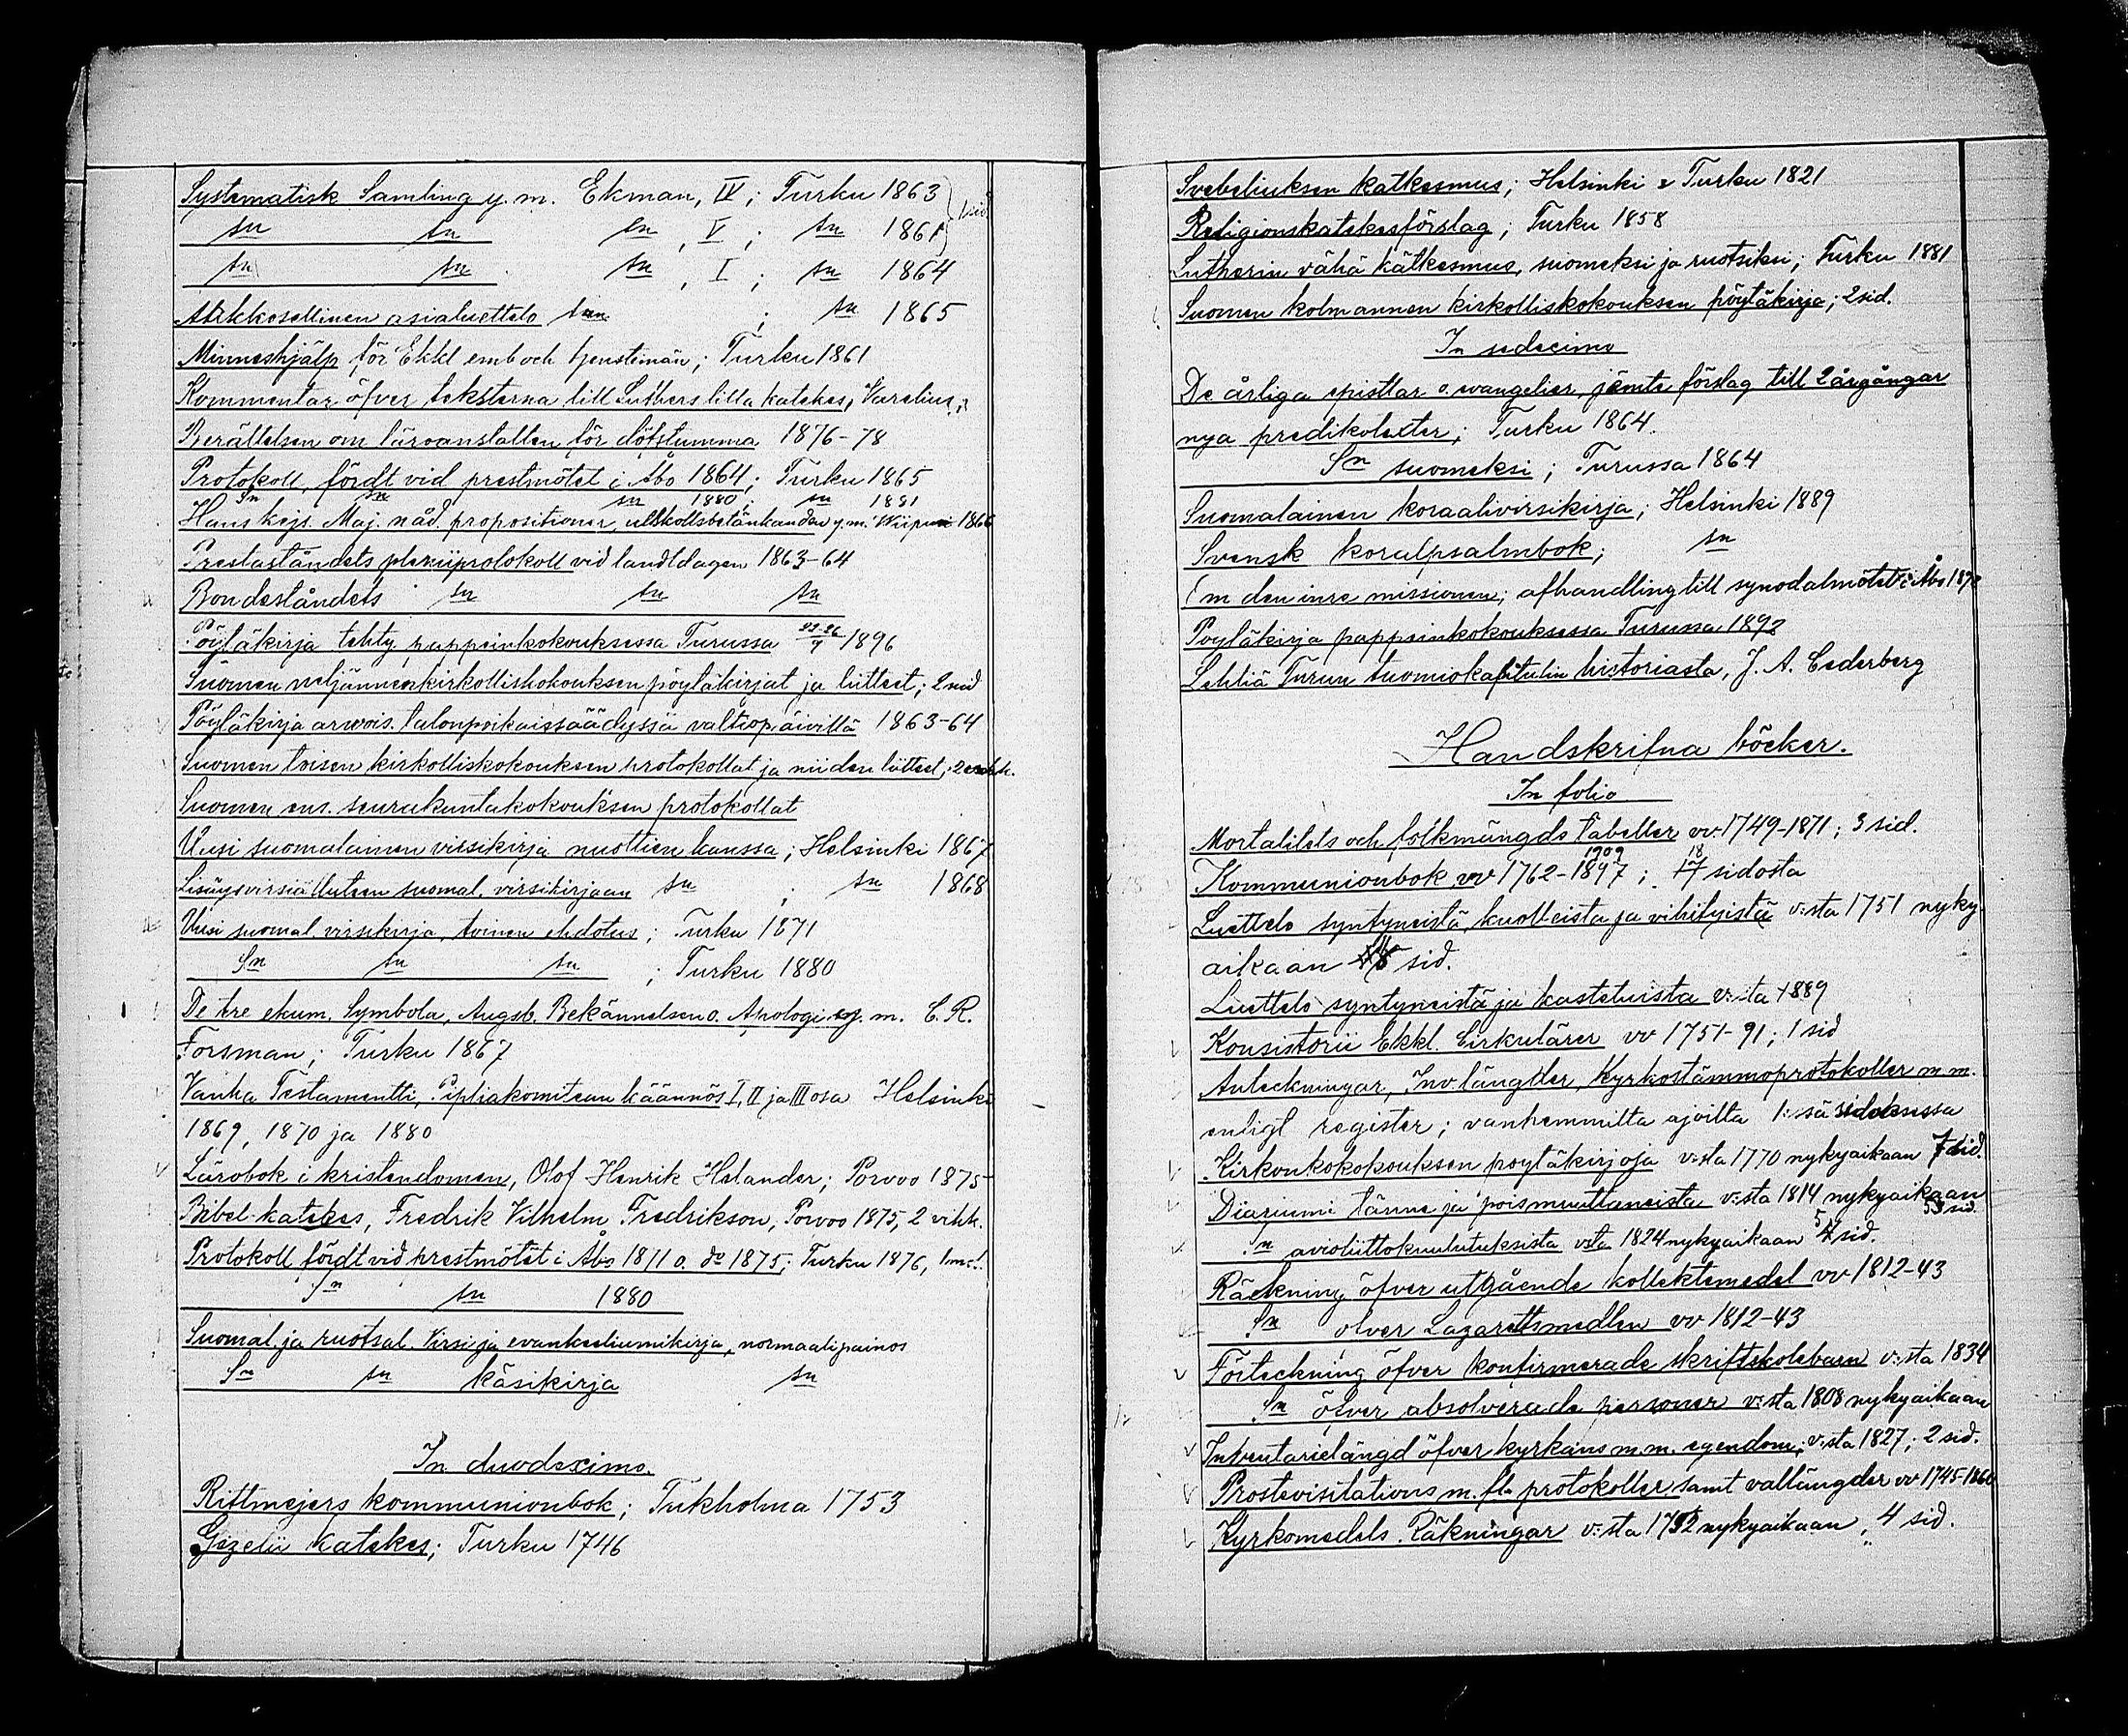 Systematisk Samling y. m. Ekman, IV; Turku 1863
sn sn sn, V; sn 1861
sn sn sn, I; sn 1864
Aakkosellinen asialuettelo sn; sn 1865
Minneshjälp för Ekkl emb och tjenstemän; Turku 1861
Kommentar öfver teksterna till Luthers lilla katekes, Varelius;
Berättelsen om läroanstalten för döfstumma 1876-78
Protokoll, fördt vid prestmötet i Åbo 1864; Turku 1865
Sn sn sn 1880; sn 1881
Hans kejs. Maj. nåd. propositioner, utskottsbetänkanden y.m. Wiipuri 1866
Prestaståndets pleniiprotokoll vid landtdagen 1863-64
Bondeståndets sn sn sn
Pöytäkirja tehty pappeinkokouksessa Turussa 22-26/9 1896
Suomen neljännen kirkolliskokouksen pöytäkirjat ja liitteet; 2 nid
Pöytäkirja arwois. talonpoikaissäädyssä valtiopäivillä 1863-64
Suomen toisen kirkolliskokouksen protokollat ja niiden liitteet; 2
Suomen ens. seurakuntakokouksen protokollat
Uusi suomalainen virsikirja nuottien kanssa; Helsinki 1867
Lisäysvirsiä Uuteen suomal. virsikirjaan sn; sn 1868
Uusi suomal. virsikirja, toinen ehdotus; Turku 1871
Sn sn sn; Turku 1880
De tre ekum. Symbola, Augsb. Bekännelsen o. Apologi y. m. C. R.
Forsman; Turku 1867
Vanha Testamentti, Pipliakomitean käännös I, II ja III osa Helsinki
1869, 1870 ja 1880
Lärobok i kristendomen, Olof Henrik Helander; Porvoo 1875
Bibel-katekes, Fredrik Vilhelm Fredrikson, Porvoo 1875, 2 vihk.
Protokoll fördt vid prestmötet i Åbo 1871 o. do 1875; Turku 1876,
Sn sn 1880
Suomal. ja ruotsal. Virsi ja evankeeliumikirja, normaalipainos
Sn sn käsikirja sn
In duodecimo.
Rittmejers kommunionbok; Tukholma 1753
Gezelii katekes; Turku 1746
Svebeliuksen katkesmus; Helsinki & Turku 1821
Religionskatekesförslag; Turku 1858
Lutherin vähä kätkesmus, suomeksi ja ruotsiksi; Turku 1881
Suomen kolmannen kirkolliskokouksen pöytäkirja; 2 sid.
In sedecimo
De årliga epistlar o. wangelier, jemte förslag till 2 årgångar
nya predikotexter; Turku 1864.
Sn suomeksi; Turussa 1864
Suomalainen koraalivirsikirja; Helsinki 1889
Svensk koralpsalmbok; sn
Om den inre missionen; afhandling till synodalmötet i Åbo
Pöytäkirja pappeinkokouksessa Turussa 1892
Lehtiä Turun tuomiokapitulin historiasta, J. A. Cederberg
Handskrifna böcker.
In folio
Mortalitets och folkmängds Tabeller vv 1749-1871; 3 sid.
Kommunionbok vv 1762-1897 1909; 17 18 sidosta
Luettelo syntyneistä, kuolleista ja vihityistä v:sta 1751 nyky-
aikaan sid.
Luettelo syntyneistä ja kastetuista v:sta 1889
Konsistorii Ekkl. Cirkulärer vv 1751-91; 1 sid
Anteckningar, Inv. längder, Kyrkostämmoprotokoller m m.
enligt register; vanhemmilta ajoilta 1:sä sidoksessa
Kirkonkokokouksen pöytäkirjoja v:sta 1770 nykyaikaan 7 sid.
Diariumi tänne ja poismuuttaneista v:sta 1814 nykyaikaan
sid.
Sn avioliittokuulutuksista v:sta 1824 nykyaikaan 5 sid.
Räckning öfver utgående kollektmedel vv 1812-43
Sn öfver Lazarettsmedlen vv 1812-43
Förteckning öfver konfirmerade skriftskolebarn v:sta 1834
Sn öfver absolverade personer v:sta 1808 nykyaikaan
Inventarielängd öfver kyrkans m. m. egendom; v:sta 1827; 2 sid.
Prostevisitations m. fl. protokoller samt vallängder vv 1745-1860
Kyrkomedels Räkningar v:sta 1752 nykyaikaan, 4 sid.